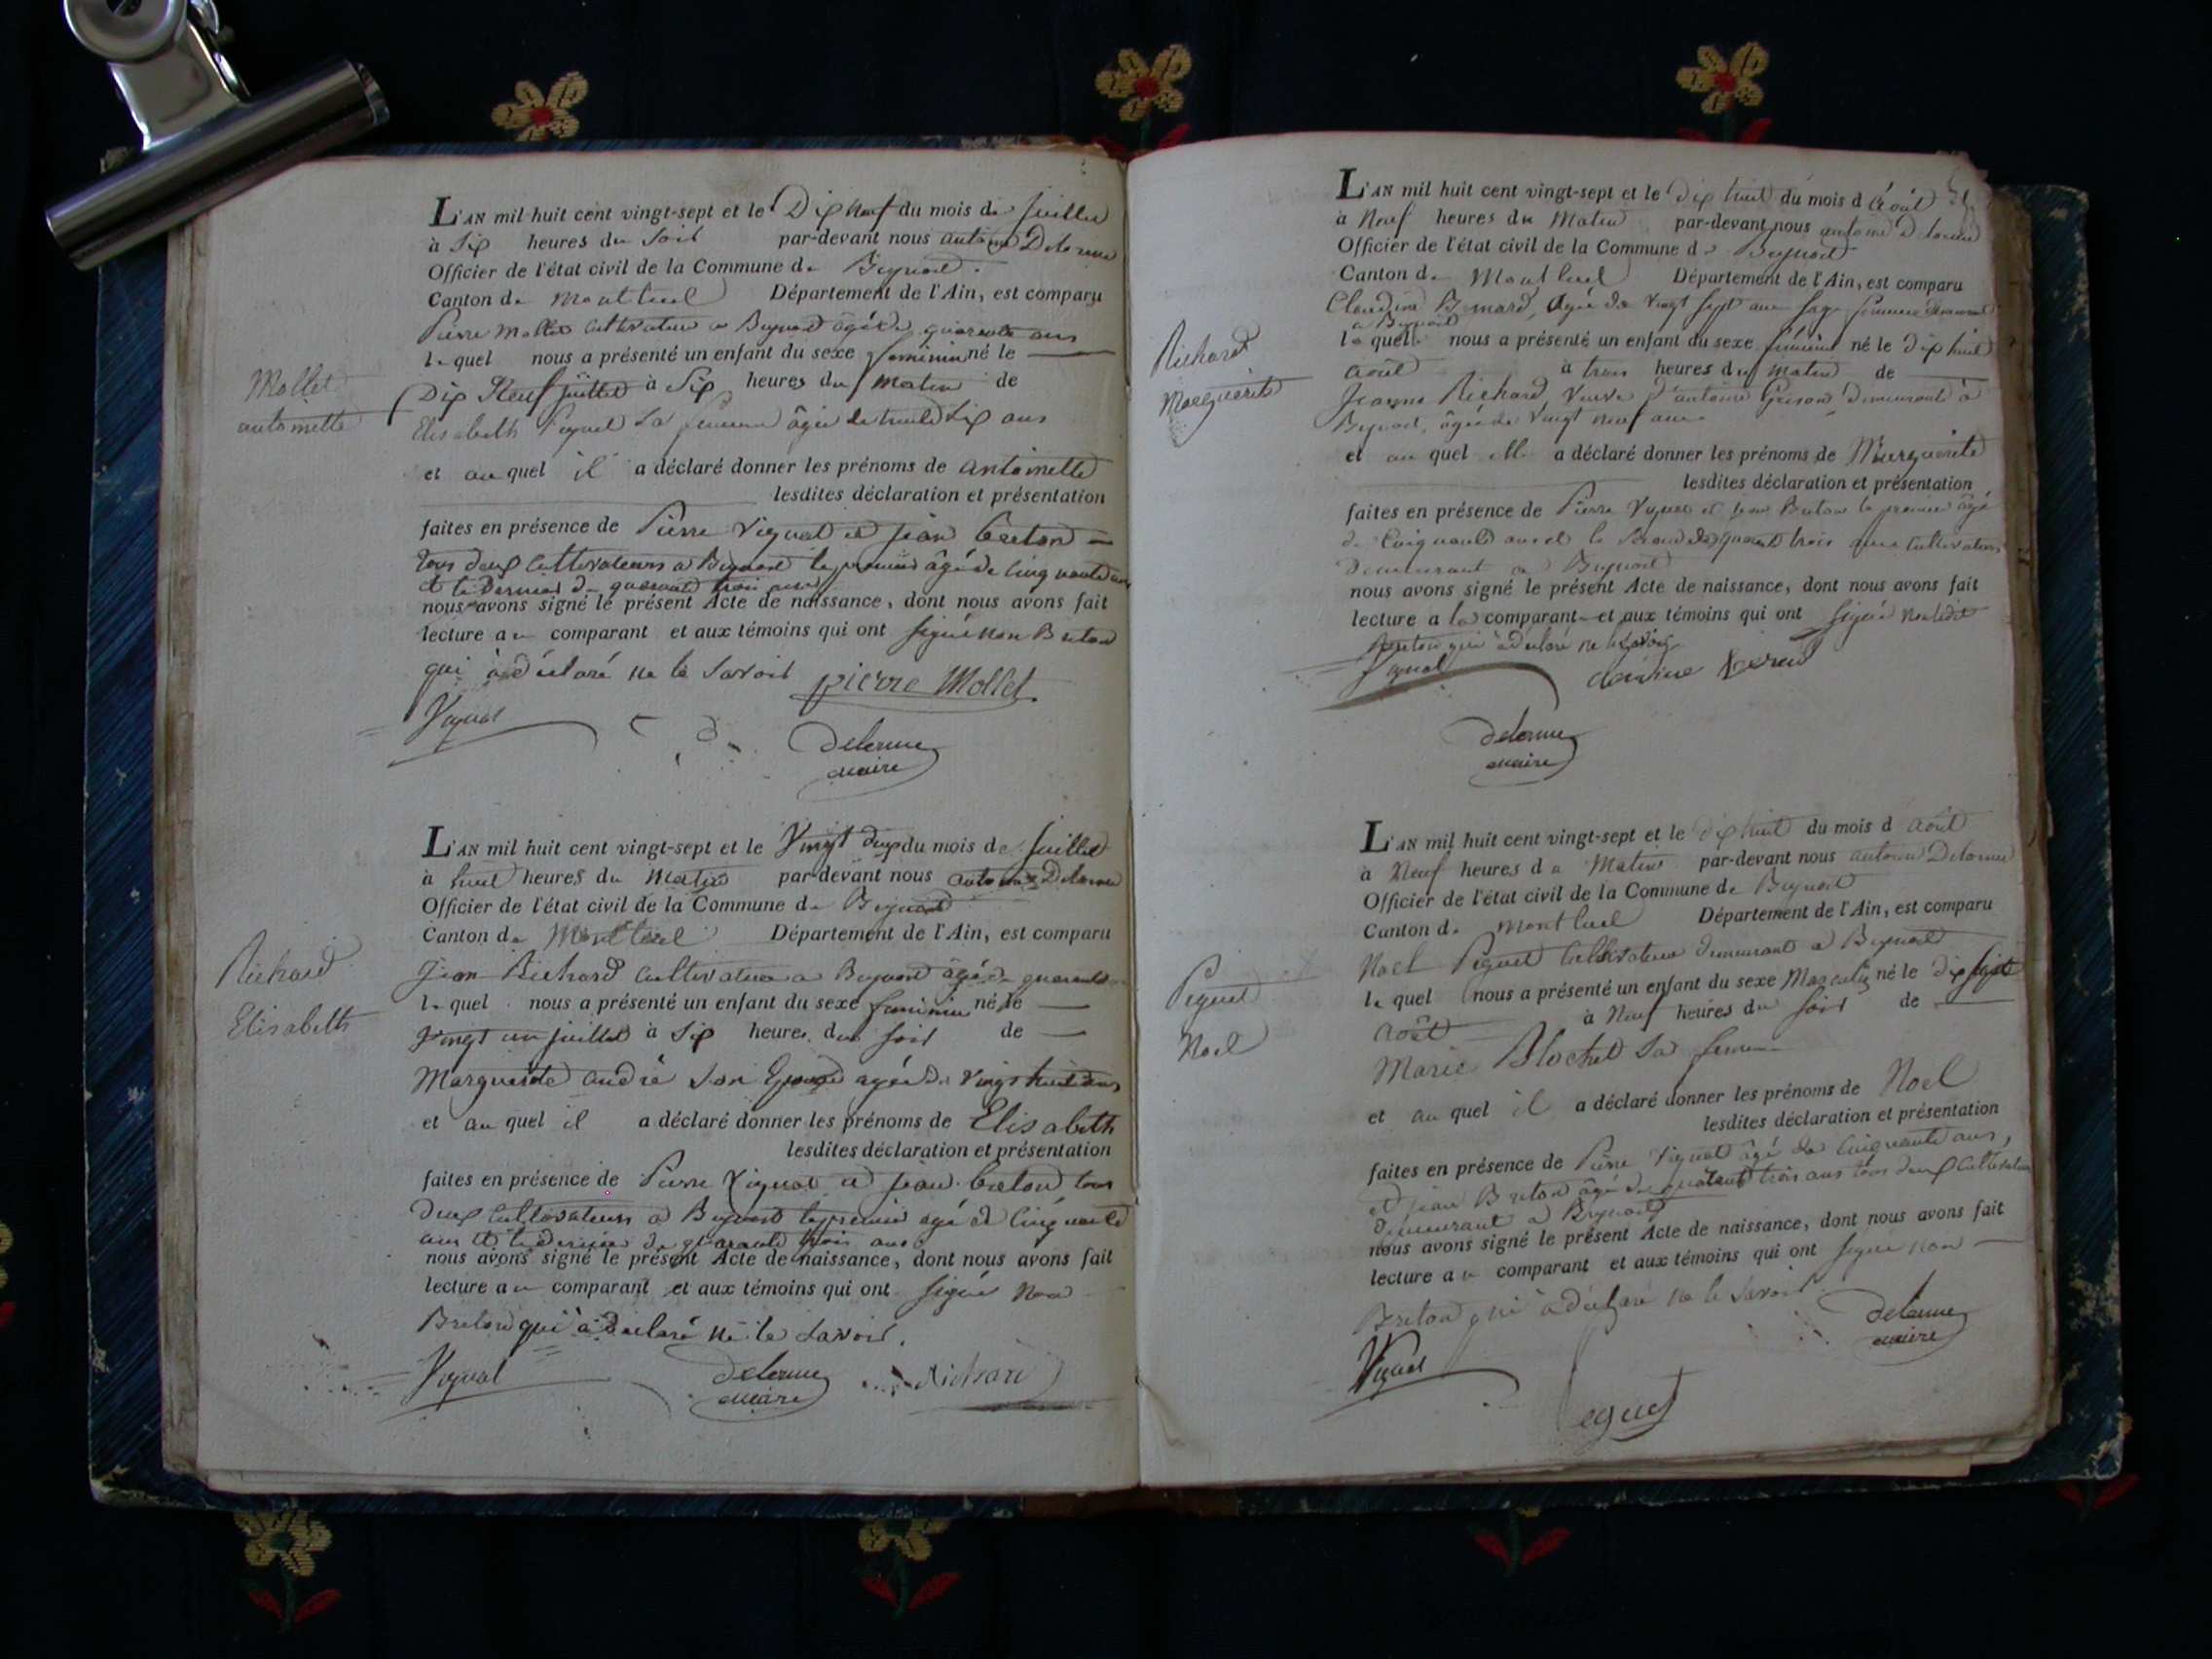 Mollet
antoinette
L'AN mil huit cent vingt-sept et le Dix Neuf du mois de juillet
à Six heures du Soir par-devant nous antoine Delorme
Officier de l'état civil de la Commune de Beynost.
Canton de Montluel Département de l'Ain, est comparu
Pierre Mollet cultivateur a Beynost âgé de quarante ans
lequel nous a présenté un enfant du sexe feminin né le
Dix Neuf juillet à Six heures du matin de
Elisabeth Peguet Sa femme âgée de trente Six ans
et auquel il a déclaré donner les prénoms de antoinette
lesdites déclaration et présentation
faites en présence de Pierre Vignat et jean Breton
tous deux Cultivateurs a Beynost le premier âgé de Cinquante ans
et le Dernier de quarante trois ans
nous avons signé le présent Acte de naissance, dont nous avons fait
lecture au comparant et aux témoins qui ont signé non Breton
qui à déclaré ne le Savoir
pierre Mollet
Vignat
Delorme
maire
Richard
Elisabeth
L'AN mil huit cent vingt-sept et le Vingt deux du mois de juillet
à huit heures du Matin par-devant nous antoine Delorme
Officier de l'état civil de la Commune de Beynost
Canton de Montluel Département de l'Ain, est comparu
Jean Richard Cultivateur a Beynost âgé de quarante
lequel nous a présenté un enfant du sexe feminin né le
Vingt un juillet à Six heures du soir de
Marguerite andré Son Epouse agée de Vingt huit ans
et auquel il a déclaré donner les prénoms de Elisabeth
lesdites déclaration et présentation
faites en présence de Pierre Vignat et jean Breton tous
deux Cultivateurs a Beynost le premier agé de Cinquante
ans et le dernier de quarante trois ans
nous avons signé le présent Acte de naissance, dont nous avons fait
lecture au comparant et aux témoins qui ont signé Non
Breton qui à Declaré ne le Savoir.
Vignat Delorme Richard
maire
Richard
Marguerite
L'AN mil huit cent vingt-sept et le Dix huit du mois d Août
à Neuf heures du Matin par-devant nous antoine Delorme
Officier de l'état civil de la Commune de Beynost
Canton de Montluel Département de l'Ain, est comparu
Claudine Bernard, agée de Vingt Sept ans sage femme demeurant
a Beynost
laquelle nous a présenté un enfant du sexe féminin né le dix huit
août à trois heures du matin de
Jeanne Richard, Veuve d'antoine demeurant à
Beynost, âgée de Vingt neuf ans
et auquel elle a déclaré donner les prénoms de Marguerite
lesdites déclaration et présentation
faites en présence de Pierre Vignat et jean Breton le premier âgé
de Cinquante ans et le Second de quarante trois ans Cultivateurs
demeurant a Beynost
nous avons signé le présent Acte de naissance, dont nous avons fait
lecture a la comparante et aux témoins qui ont signé non ledit
Breton qui à déclaré ne le Savoir
Vignat
Delorme
maire
Peguet
Noel
L'AN mil huit cent vingt-sept et le dix huit du mois d Août
à Neuf heures du Matin par-devant nous antoine Delorme
Officier de l'état civil de la Commune de Beynost
Canton de Montluel Département de l'Ain, est comparu
Noel Peguet Cultivateur demeurant a Beynost
lequel nous a présenté un enfant du sexe Masculin né le dix sept
août à Neuf heures du soir de
Marie Blochet Sa femme
et auquel il a déclaré donner les prénoms de Noel
lesdites déclaration et présentation
faites en présence de Pierre Vignat âgé de Cinquante ans,
et jean Breton âgé de quarante trois ans tous deux Cultivateurs
demeurant a Beynost
nous avons signé le présent Acte de naissance, dont nous avons fait
lecture au comparant et aux témoins qui ont signé non
Breton qui à déclaré ne le Savoir.
Delorme
maire
Vignat
Peguet